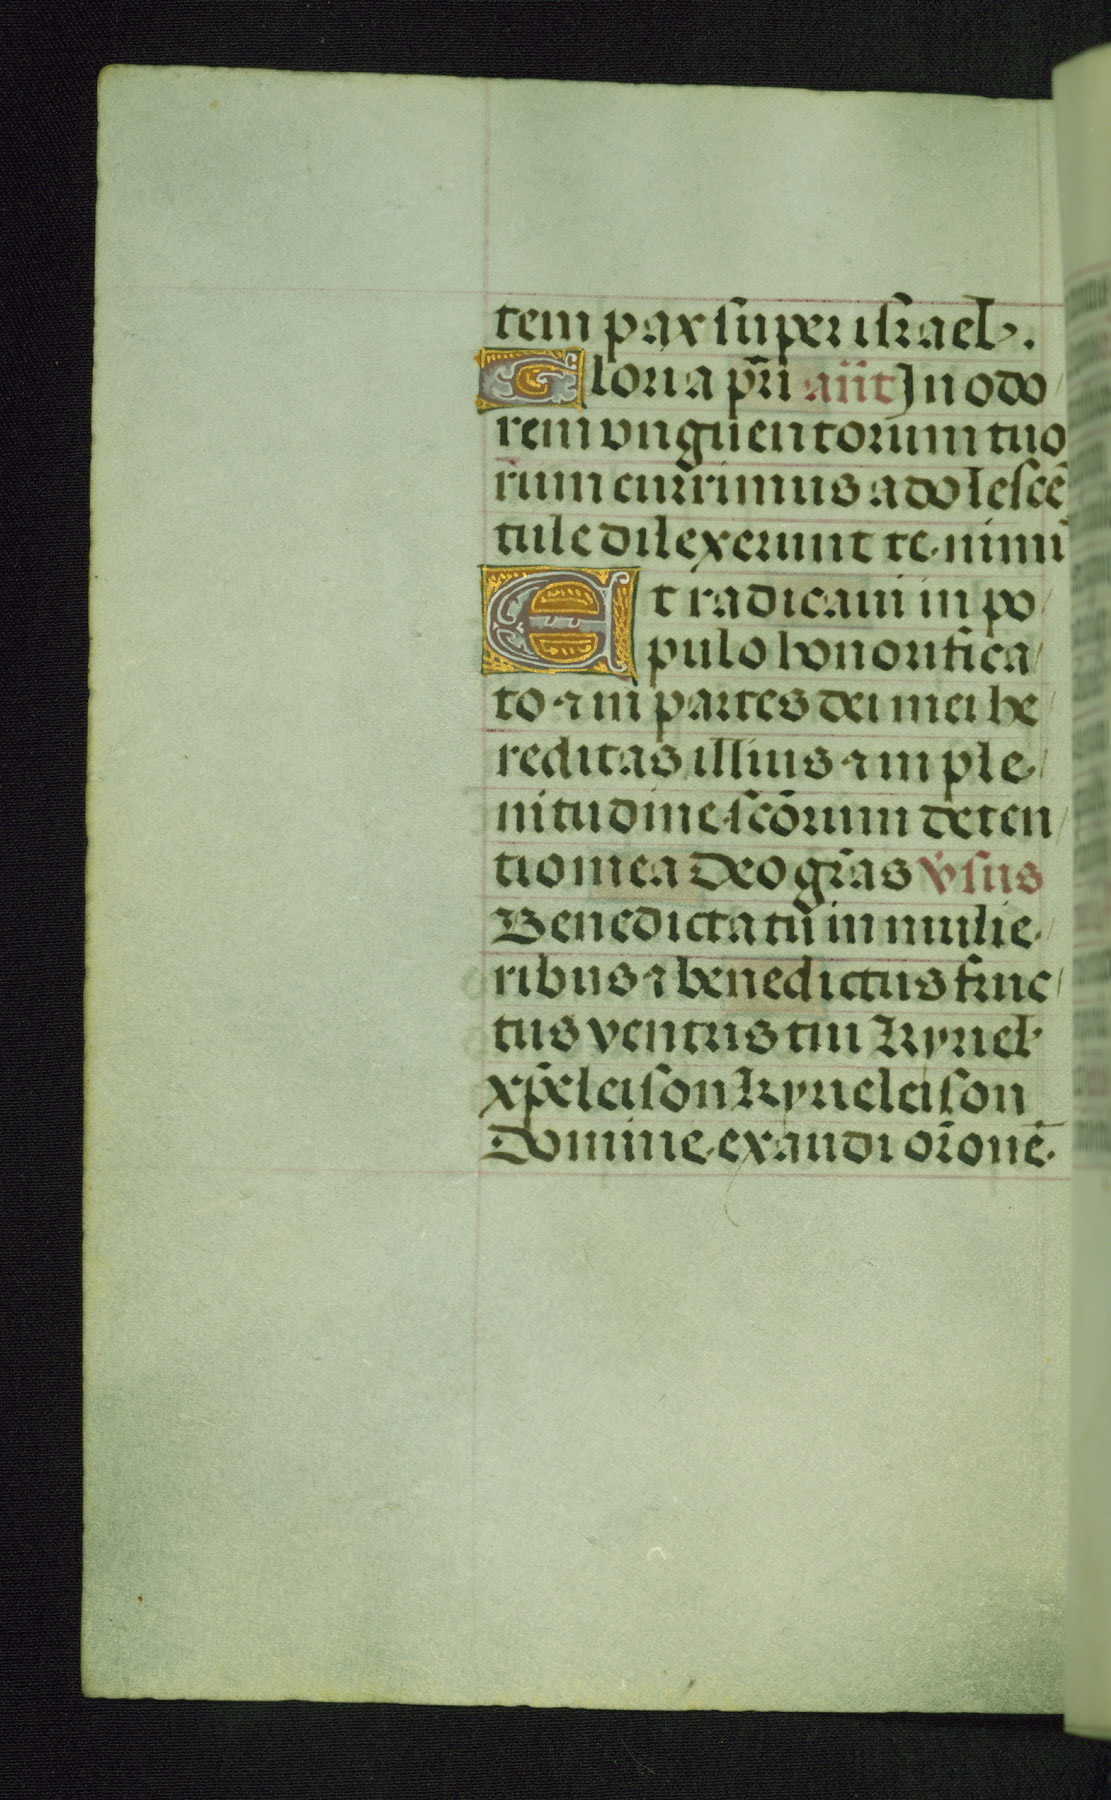 tem pax super israel.
Gloria pr̄i an̄t In odo
rem vnguentorum tuo
rum currimus adolescē
tule dilexerunt te nimū
Et radicaui in po
pulo honorifica
to ⁊ in partes dei mei he
reditas illius ⁊ in ple
nitudine scōrum deten
tio mea Deo gr̄as v̄sus
Benedicta tu in mulie
ribus ⁊ benedictus fruc
tus ventris tui Kyriel
xp̄eleison Kyrieleison
Domine exaudi or̄onē